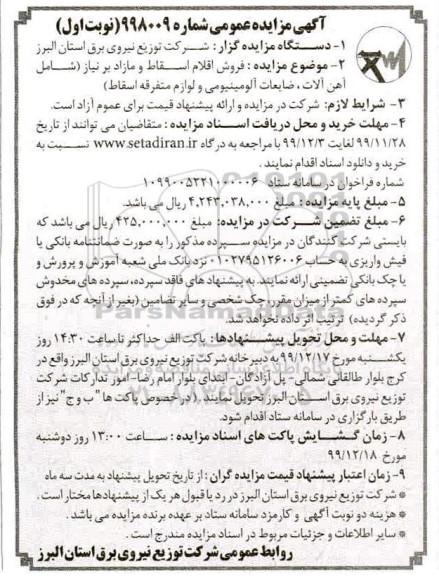 آگهی مزایده عمومی شماره ۹۹۸۰۰۹ (نوبت اول)
۱- دستگاه مزایده گزار : شرکت توزیع نیروی برق استان البرز
۲- موضوع مزایده : فروش اقلام اسقاط و مازاد بر نیاز (شامل
آهن آلات ، ضایعات آلومینیومی و لوازم متفرقه اسقاط)
۳- شرایط لازم: شرکت در مزایده و ارائه پیشنهاد قیمت برای عموم آزاد است.
۴- مهلت خرید و محل دریافت اسناد مزایده : متقاضیان می توانند از تاریخ
۹۹/۱۱/۲۸ لغایت ۹۹/۱۲/۳ با مراجعه به درگاه www.setadiran.ir نسبت به
خرید و دانلود اسناد اقدام نمایند .
شماره فراخوان در سامانه ستاد ۱۰۹۹۰۰۵۳۲۱۰۰۰۰۰۶
۵- مبلغ پایه مزایده : مبلغ ۴,۲۴۳,۰۳۸,۰۰۰ ریال می باشد.
۶- مبلغ تضمین شرکت در مزایده: مبلغ ۴۳۵,۰۰۰,۰۰۰ ریال می باشد که
بایستی شرکت کنندگان در مزایده سپرده مذکور را به صورت ضمانتنامه بانکی یا
فیش واریزی به حساب ۰۱۰۲۷۹۵۱۳۶۰۰۶ نزد بانک ملی شعبه آموزش و پرورش و
یا چک بانکی تضمینی ارائه نمایند. به پیشنهاد های فاقد سپرده، سپرده های مخدوش
سپرده های کمتر از میزان مقرر، چک شخصی و سایر تضامین (بغیر از آنچه که در فوق
ذکر گردیده) ترتیب اثر داده نخواهد شد.
۷- مهلت و محل تحویل پیشنهادها : پاکت الف حداکثر تا ساعت ۱۴:۳۰ روز
یکشنبه مورخ ۹۹/۱۲/۱۷ به دبیرخانه شرکت توزیع نیروی برق استان البرز واقع در
کرج بلوار طالقانی شمالی- پل آزادگان- ابتدای بلوار امام رضا- امور تدارکات شرکت
توزیع نیروی برق استان البرز تحویل نمایند . (در خصوص پاکت ها " ب و ج" نیز از
طریق بارگزاری در سامانه ستاد اقدام شود.
۸- زمان گشایش پاکت های اسناد مزایده : ساعت ۱۳:۰۰ روز دوشنبه
مورخ ۹۹/۱۲/۱۸
۹- زمان اعتبار پیشنهاد قیمت مزایده گران : از تاریخ تحویل پیشنهاد به مدت سه ماه
* شرکت توزیع نیروی برق استان البرز در رد یا قبول هر یک از پیشنهادها مختار است .
* هزینه دو نوبت آگهی و کارمزد سامانه ستاد بر عهده برنده مزایده می باشد .
* سایر اطلاعات و جزئیات مربوط در اسناد مزایده مندرج است .
روابط عمومی شرکت توزیع نیروی برق استان البرز